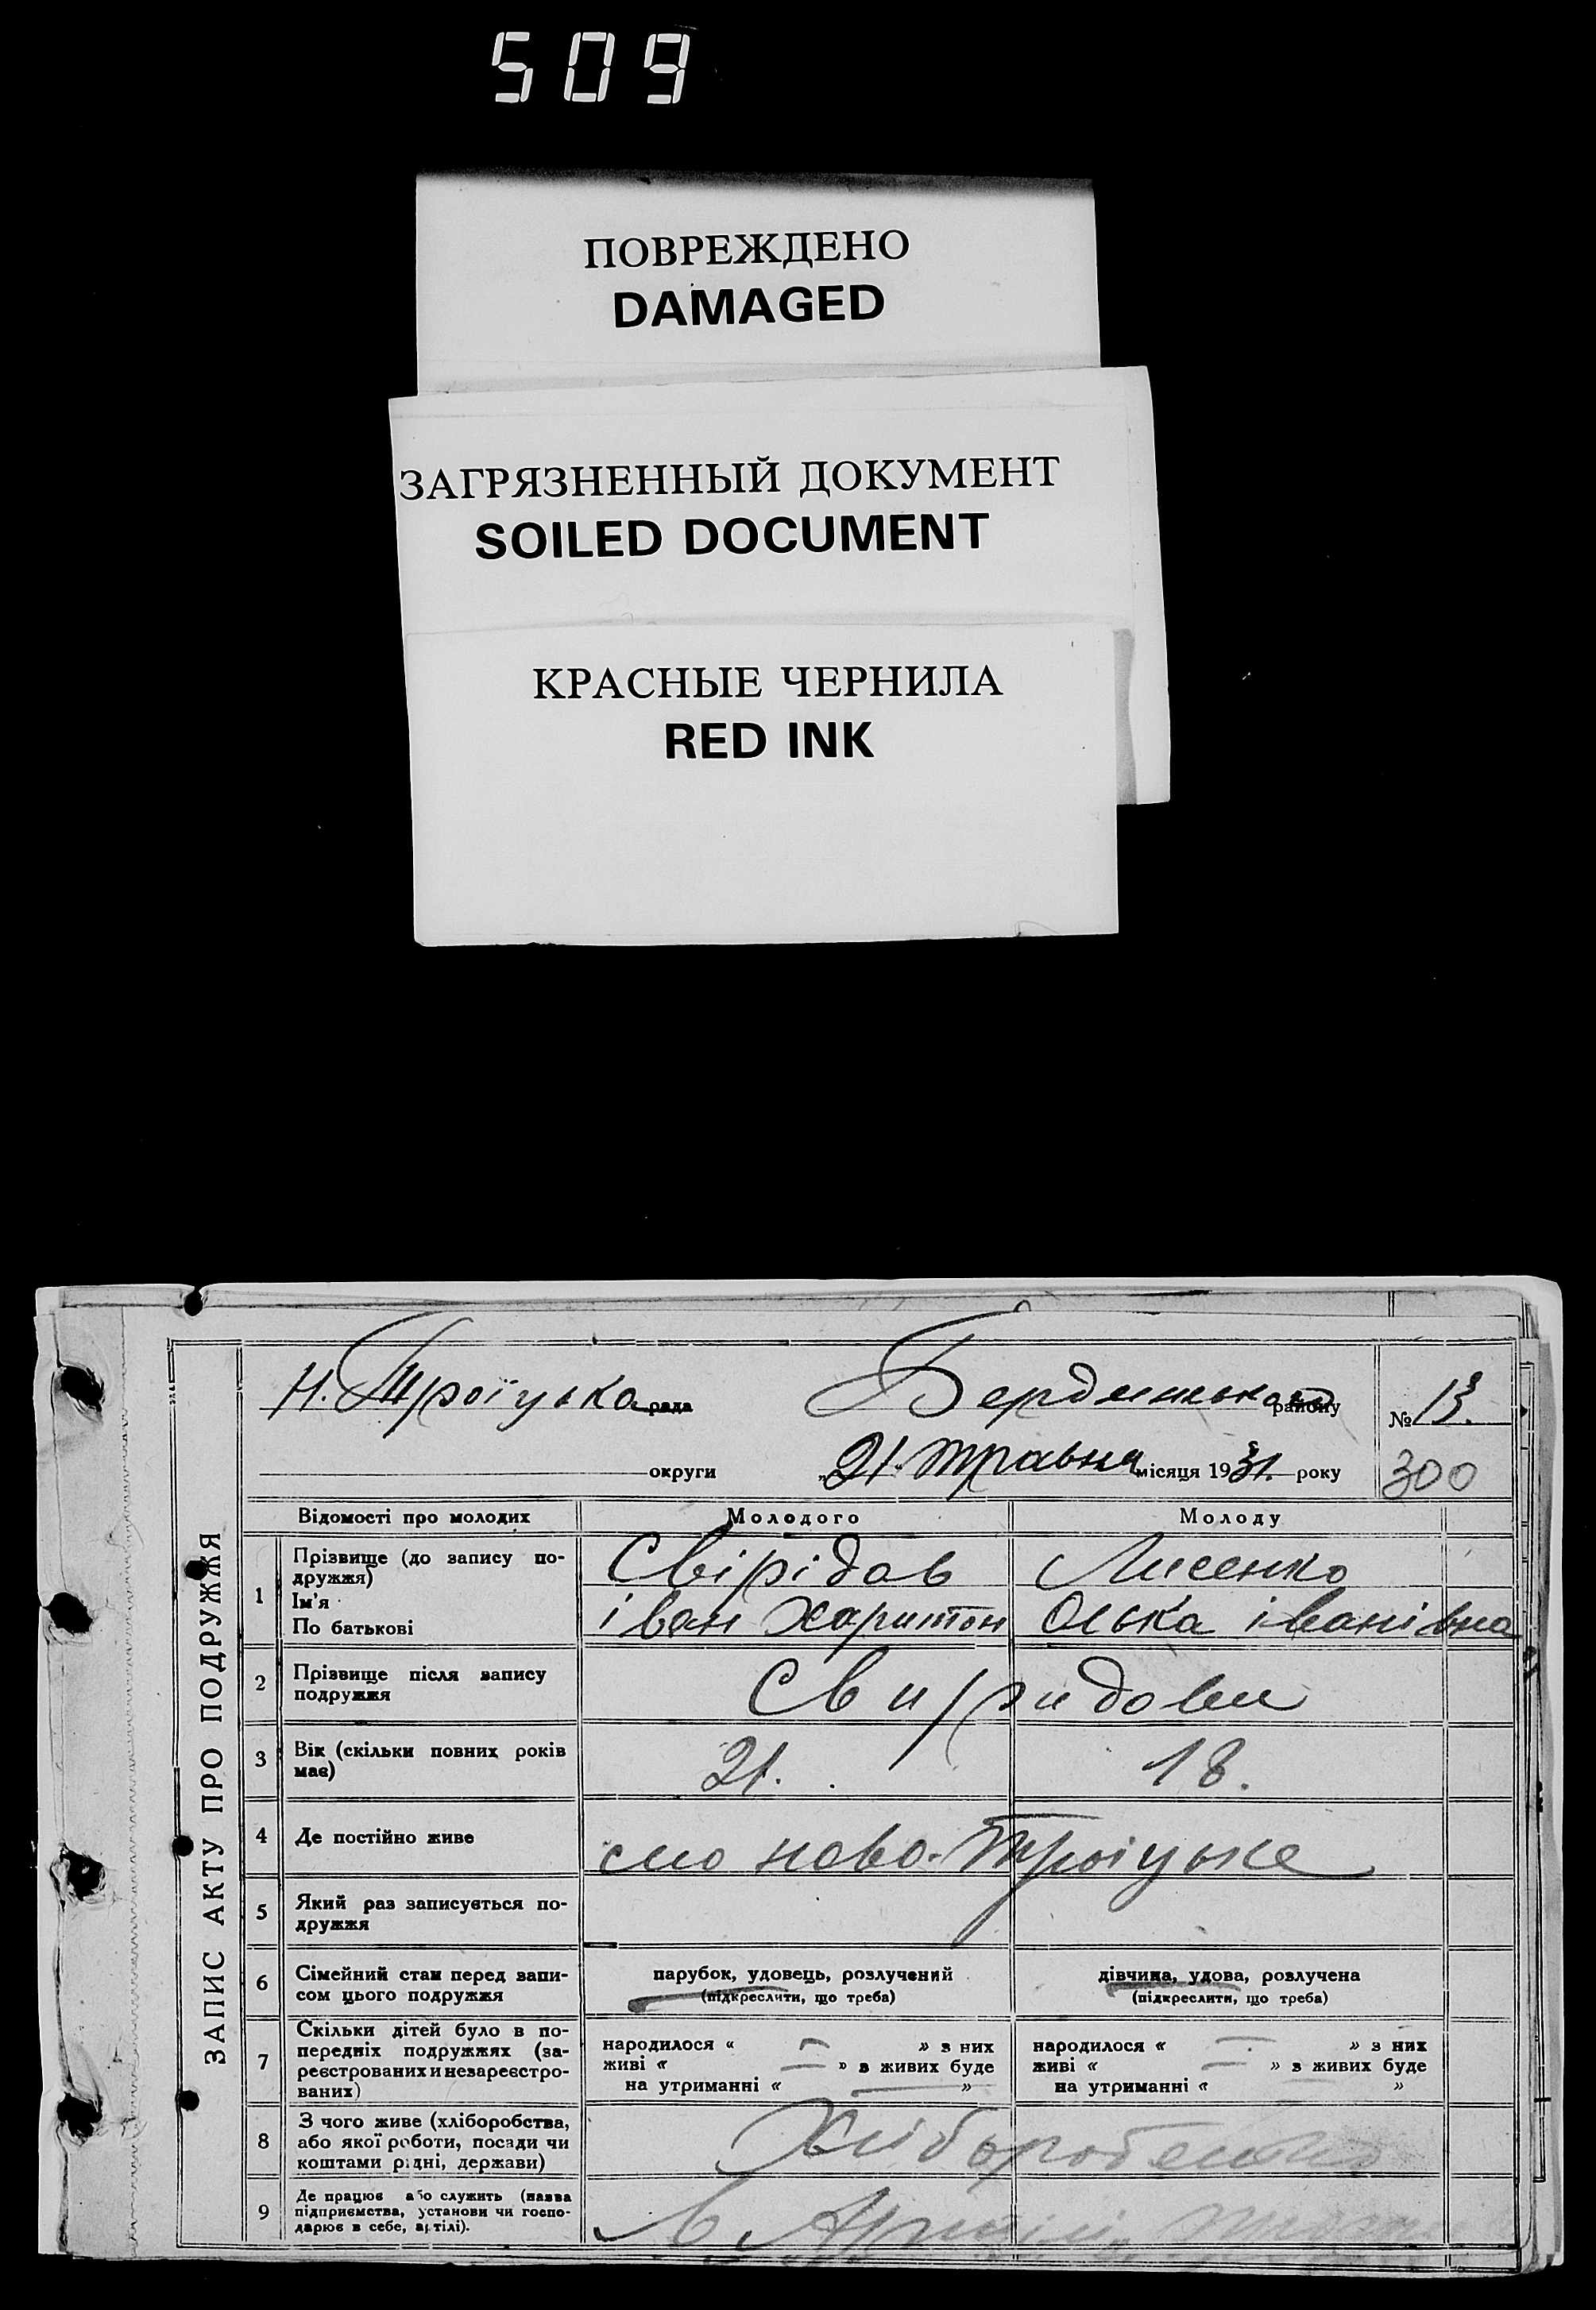 509
ПОВРЕЖДЕНО
DAMAGED
ЗАГРЯЗНЕННЫЙ ДОКУМЕНТ
SOILED DOCUMENT
КРАСНЫЕ ЧЕРНИЛА
RED INK
ЗАПИС АКТУ ПРО ПОДРУЖЖЯ
Н. Троїцька рада
району
№ 13.
округи „21“ Травня місяця 1931. року
300
Відомості про молодих Молодого Молоду
1 Прізвище (до запису по-
дружжя)
Ім'я
По батькові
Свірідав Лисенко
іван Харитон Олька іванівна
2 Прізвище після запису
подружжя
Свиридови
3 Вік (скільки повних років
має)
21. 18.
4 Де постійно живе
ново-Троіцьке
5 Який раз записується по-
дружжя
6 Сімейний стан перед запи-
сом цього подружжя
парубок, удовець, розлучений
(підкреслити, що треба)
дівчина, удова, розлучена
(підкреслити, що треба)
7 Скільки дітей було в по-
передніх подружжях (за-
реєстрованих и незареєстро-
ваних)
народилося « — » з них
живі « — » з живих буде
на утриманні « — »
народилося « — » з них
живі « — » з живих буде
на утриманні « »
8 З чого живе (хліборобства,
або якої роботи, посади чи
коштами рідні, держави)
9 Де працює або служить (назва
підприємства, установи чи госпо-
дарює в себе, артілі).
в Артілі